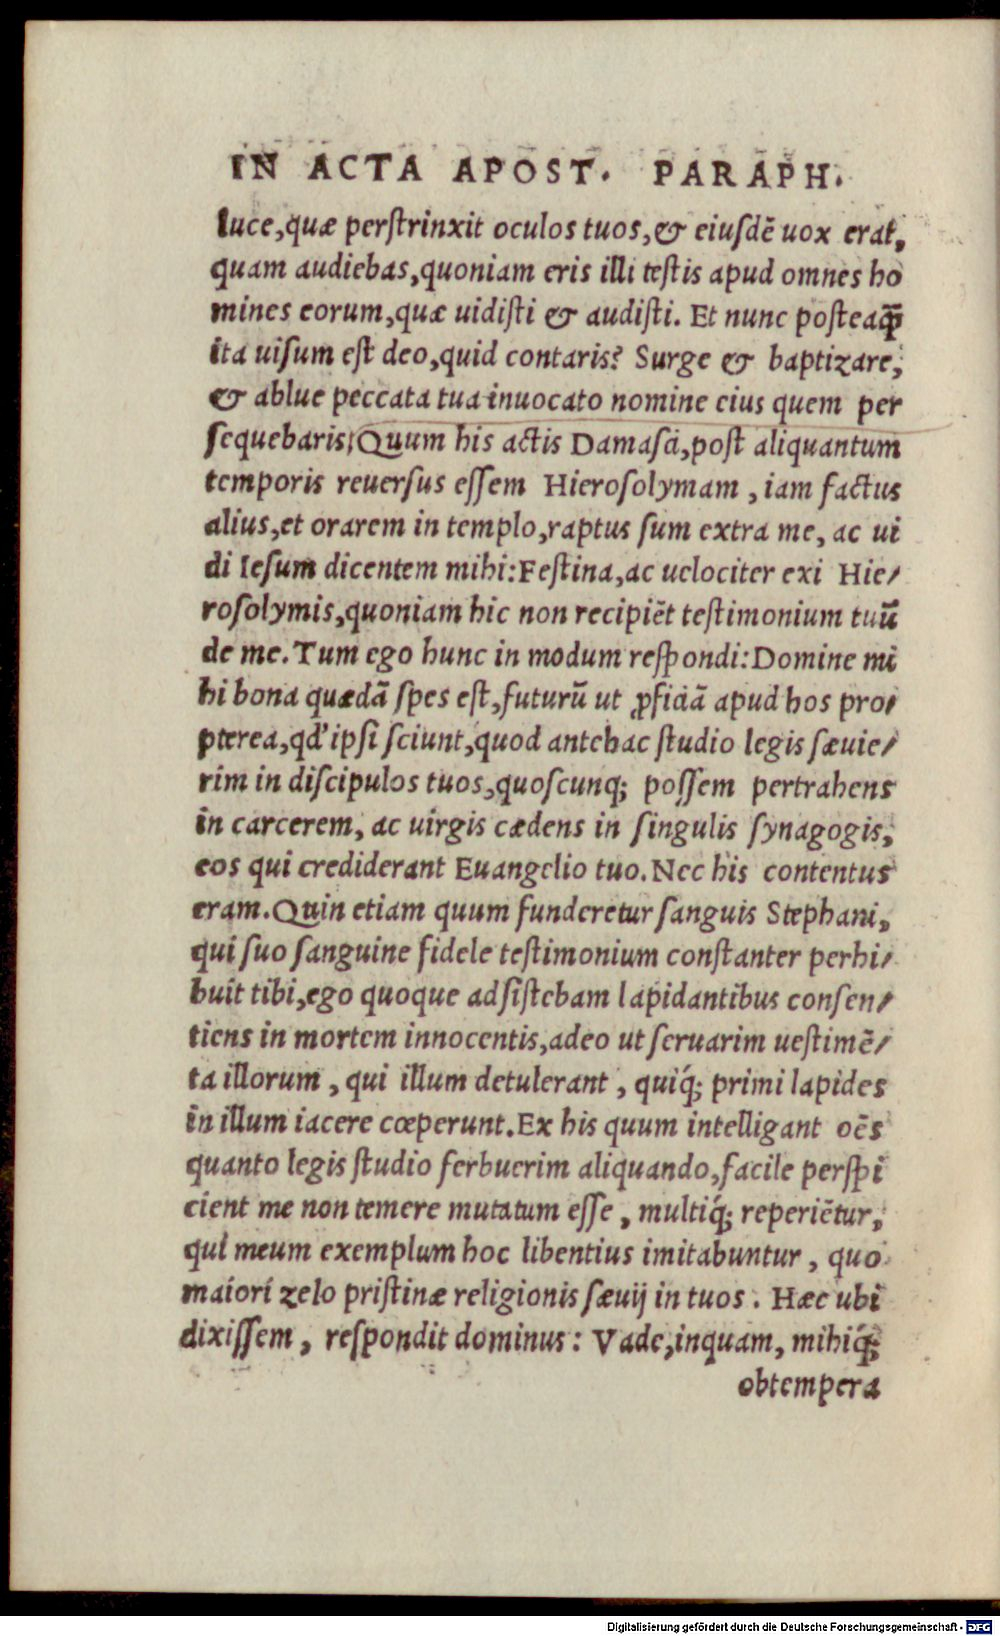 IN ACTA APOST. PARAPH.
luce,quæ perſtrinxit oculos tuos,& eiuſdē uox erat,
quam audiebas,quoniam eris illi teſtis apud omnes ho
mines eorum,quæ uidiſti & audiſti. Et nunc poſteaq̄
ita uiſum eſt deo,quid contaris? Surge & baptizare,
& ablue peccata tua inuocato nomine eius quem per
ſequebaris. Quum his actis Damaſci,poſt aliquantum
temporis reuerſus eſſem Hieroſolymam , iam factus
alius,et orarem in templo,raptus ſum extra me, ac ui
di Ieſum dicentem mihi:Feſtina,ac uelociter exi Hie/
roſolymis,quoniam hic non recipiēt teſtimonium tuū
de me. Tum ego hunc in modum reſpondi:Domine mi
hi bona quædā ſpes eſt,futurū ut ꝓficiā apud hos pro/
pterea,qd' ipſi ſciunt,quod antehac ſtudio legis ſæuie/
rim in diſcipulos tuos,quoſcunq; poſſem pertrahens
in carcerem, ac uirgis cædens in ſingulis ſynagogis,
eos qui crediderant Euangelio tuo. Nec his contentus
eram. Quin etiam quum funderetur ſanguis Stephani,
qui ſuo ſanguine fidele teſtimonium conſtanter perhi/
buit tibi,ego quoque adſiſtebam lapidantibus conſen/
tiens in mortem innocentis,adeo ut ſeruarim ueſtimē/
ta illorum , qui illum detulerant , quiq́; primi lapides
in illum iacere cœperunt. Ex his quum intelligant oēs
quanto legis ſtudio ferbuerim aliquando,facile perſpi
cient me non temere mutatum eſſe , multiq́; reperiētur,
qui meum exemplum hoc libentius imitabuntur , quo
maiori zelo priſtinæ religionis ſæuij in tuos . Hæc ubi
dixiſſem , reſpondit dominus : Vade,inquam, mihiq́;
obtempera
Digitalisierung gefördert durch die Deutsche Forschungsgemeinschaft - DFG